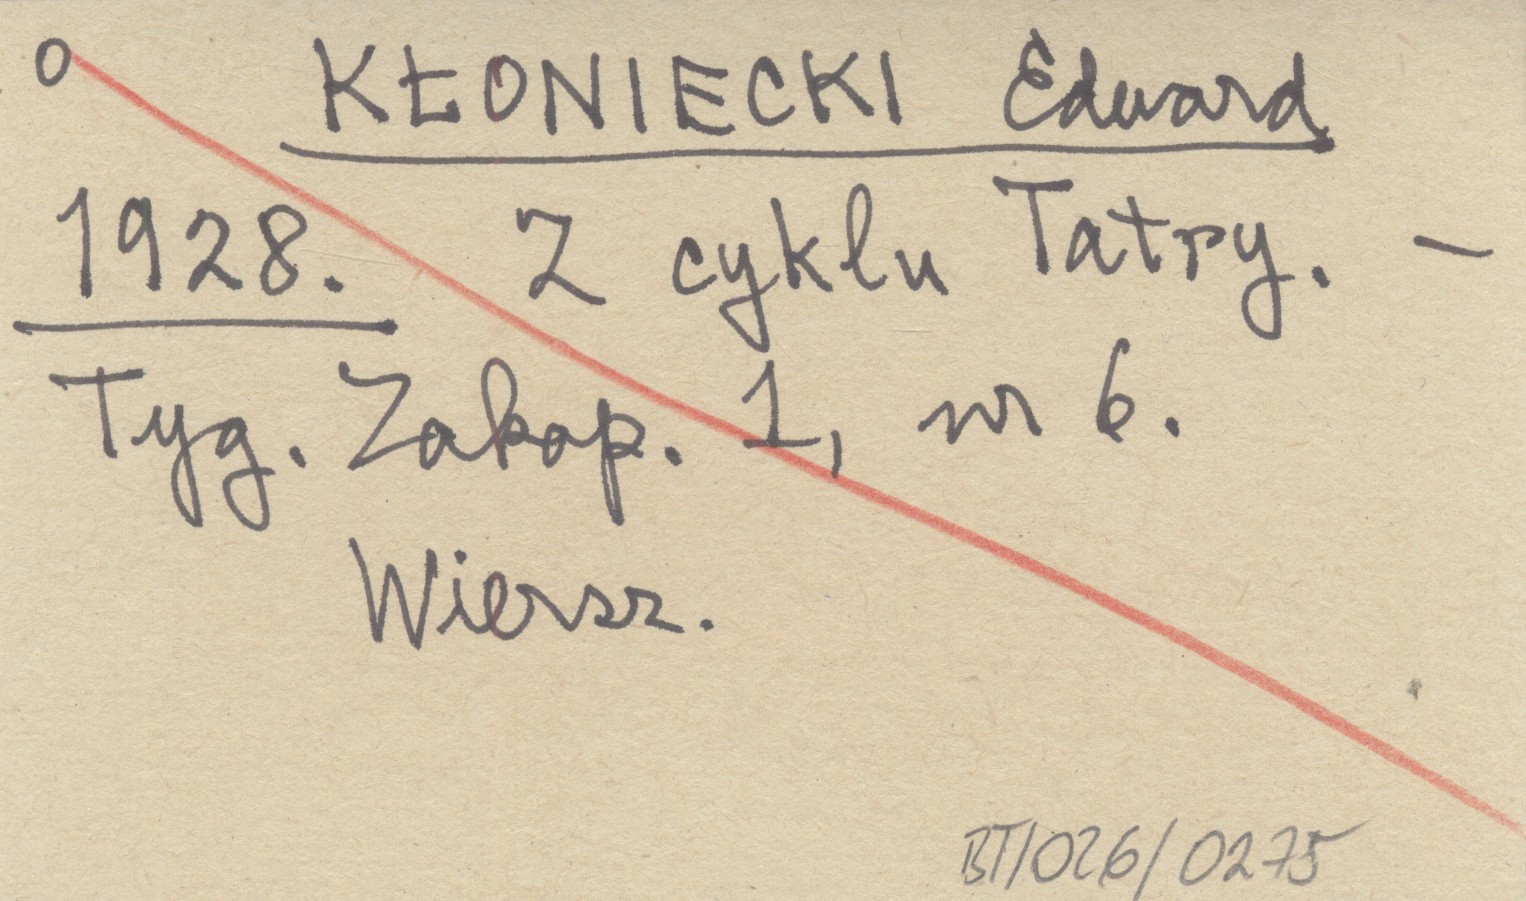 O KŁONIECKI Edward
1928. Z cyklu Tatry. –
Tyg. Zakop. 1, nr 6.
Wiersz.
BT/026/0275